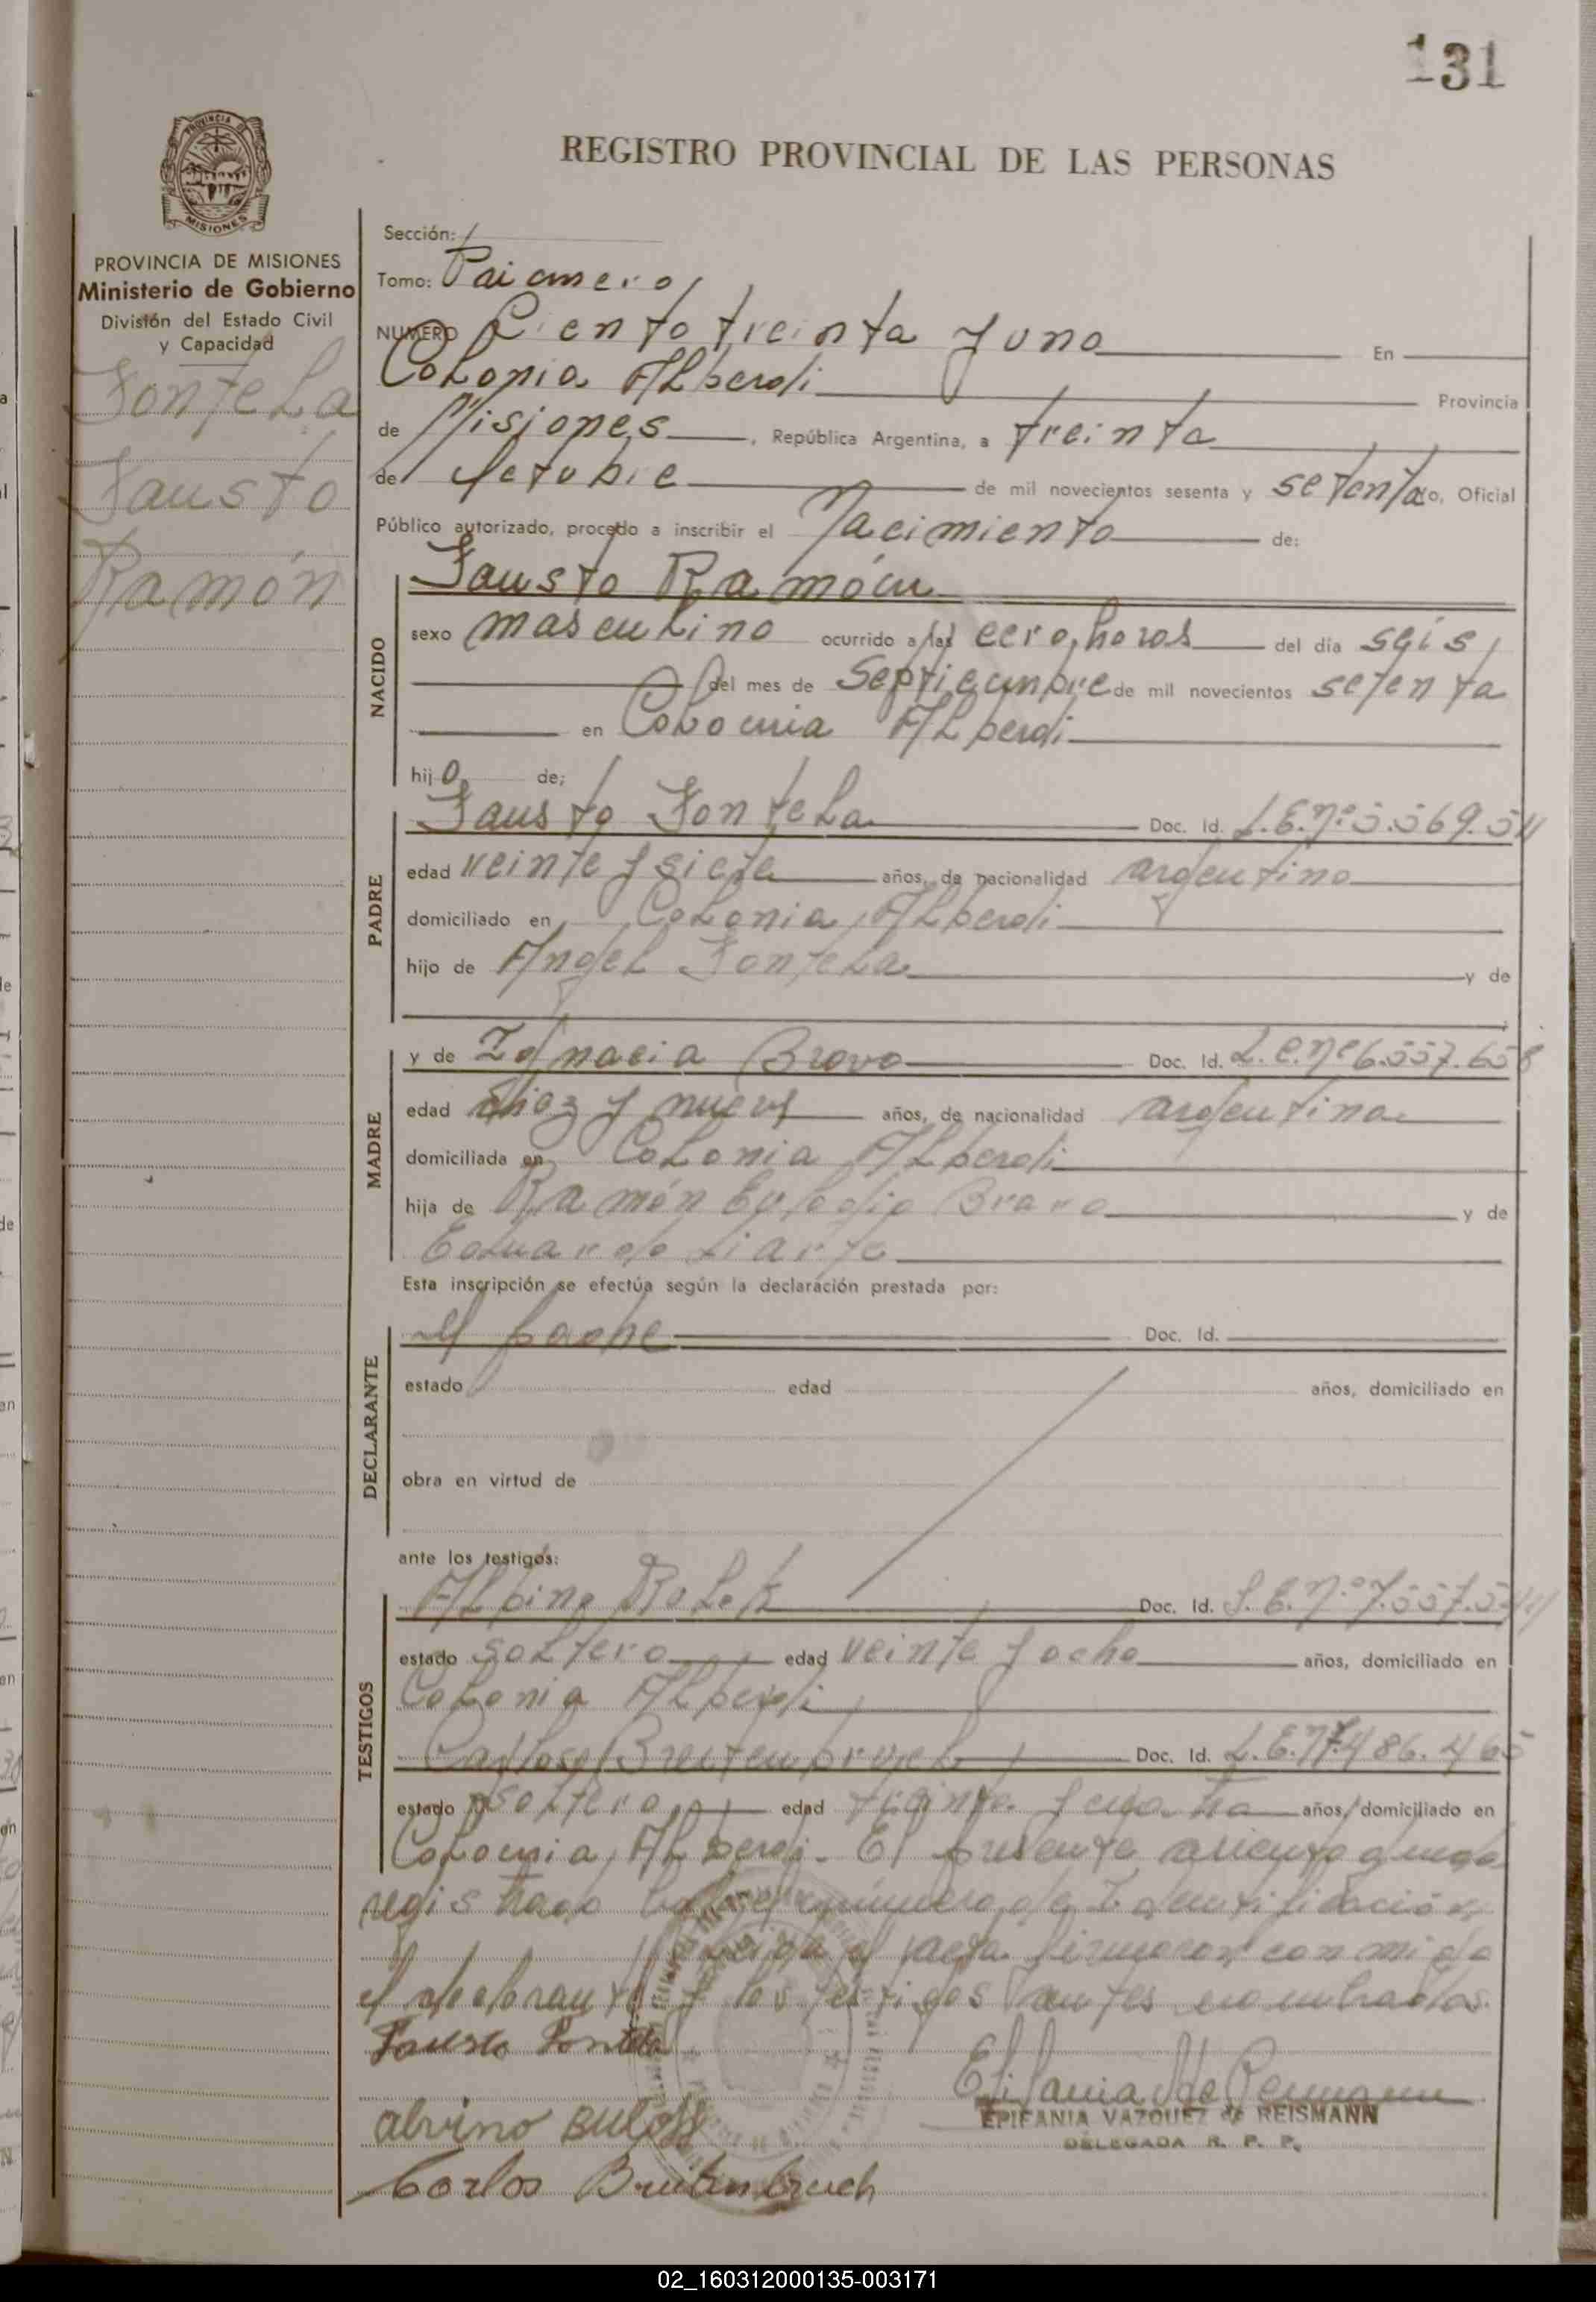 131
PROVINCIA DE
MISIONES
REGISTRO PROVINCIAL DE LAS PERSONAS
PROVINCIA DE MISIONES
Ministerio de Gobierno
División del Estado Civil
y Capacidad
Fontela
Fausto
Ramón
Sección:
Tomo: Paimero
NUMERO Ciento treinta y uno En
Colonia Alberdi Provincia
de Misiones, República Argentina, a treinta
de Octubre de mil novecientos sesenta y setenta yo, Oficial
Público autorizado, procedo a inscribir el Nacimiento de:
NACIDO
Fausto Ramón
sexo masculino ocurrido a las cero horas del día seis
del mes de Septiembre de mil novecientos setenta
en Colonia Alberdi
hijo de:
PADRE
Fausto Fontela Doc. Id. L.E.nº
edad veinte y siete años, de nacionalidad argentino
domiciliado en Colonia Alberdi
hijo de Angel Fontela y de
MADRE
y de Ignacia Bravo Doc. Id. L.C.nº 6.557.658
edad diez y nueve años, de nacionalidad argentina
domiciliada en Colonia Alberdi
hija de Ramón Eulogio Bravo y de
Esta inscripción se efectúa según la declaración prestada por:
DECLARANTE
el padre Doc. Id.
estado edad años, domiciliado en
obra en virtud de
ante los testigos:
TESTIGOS
Albino Doc. Id. L.E.nº
estado soltero edad veinte y ocho años, domiciliado en
Colonia Alberdi
Carlos Breitenbruch Doc. Id. L.E.nº 7.486.465
estado soltero edad treinta y cuatro años, domiciliado en
Colonia Alberdi. El presente asiento queda
registrado bajo el número de Identificación
el acta firmaron con migo
el declarante y los testigos antes nombrados.
Fausto Fontela
Epifania Vde Reismann
EPIFANIA VAZQUEZ de REISMANN
DELEGADA R. P. P.
alvino
Carlos Breitenbruch
02_160312000135-003171